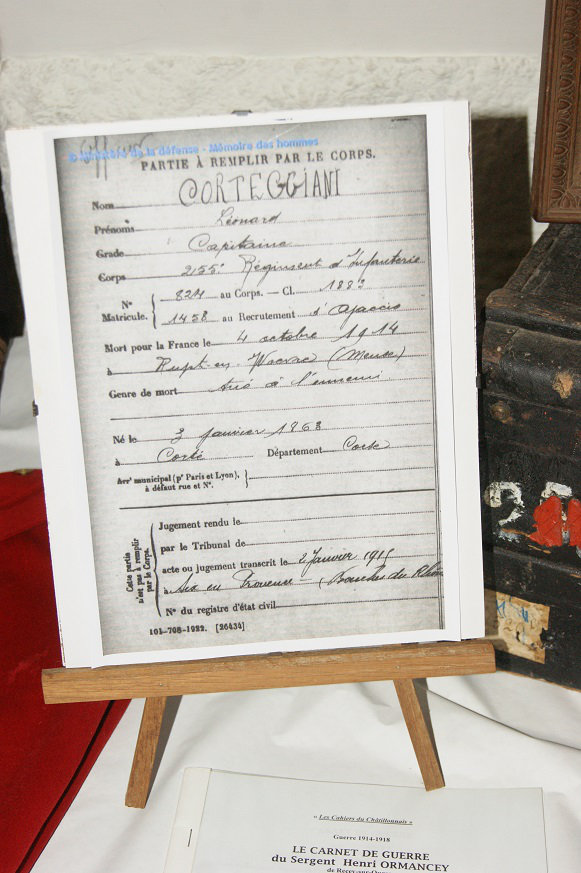 © Ministère de la défense - Mémoire des hommes
PARTIE À REMPLIR PAR LE CORPS.
Nom CORTEGGIANI
Prénoms Léonard
Grade Capitaine
Corps 255e Régiment d'Infanterie
N° Matricule. { 8211 au Corps. — Cl. 1888
1458 au Recrutement d'Ajaccio
Mort pour la France le 4 octobre 1914
à Rupt en Woevre (Meuse)
Genre de mort Tué à l'ennemi
Né le 3 Janvier 1868
à Corté Département Corse
Arrt municipal (pr Paris et Lyon), à défaut rue et N°. }
Cette partie n'est pas à remplir par le Corps.
Jugement rendu le
par le Tribunal de
acte ou jugement transcrit le 2 Janvier 1915
à Aix en Provence (Bouches du Rhône
N° du registre d'état civil
101-708-1922. [26434]
« Les Cahiers du Châtillonnais »
Guerre 1914-1918
LE CARNET DE GUERRE
du Sergent Henri ORMANCEY